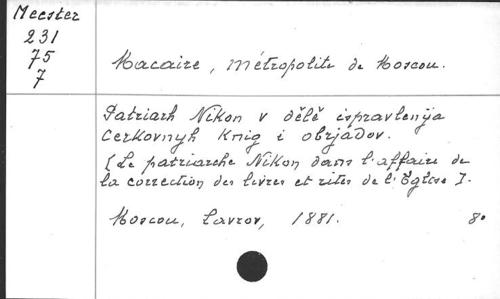 Meester
231
75
7
Macaire, métropolite de Moscou.
Patriarh Nikon v dělě ispravlenija
Cerkovnyh Knig i obrjadov.
[Le patriarche Nikon dans l'affaire de
la correction des livres et rites de l'Eglise].
Moscou, Lavrov, 1881. 8°